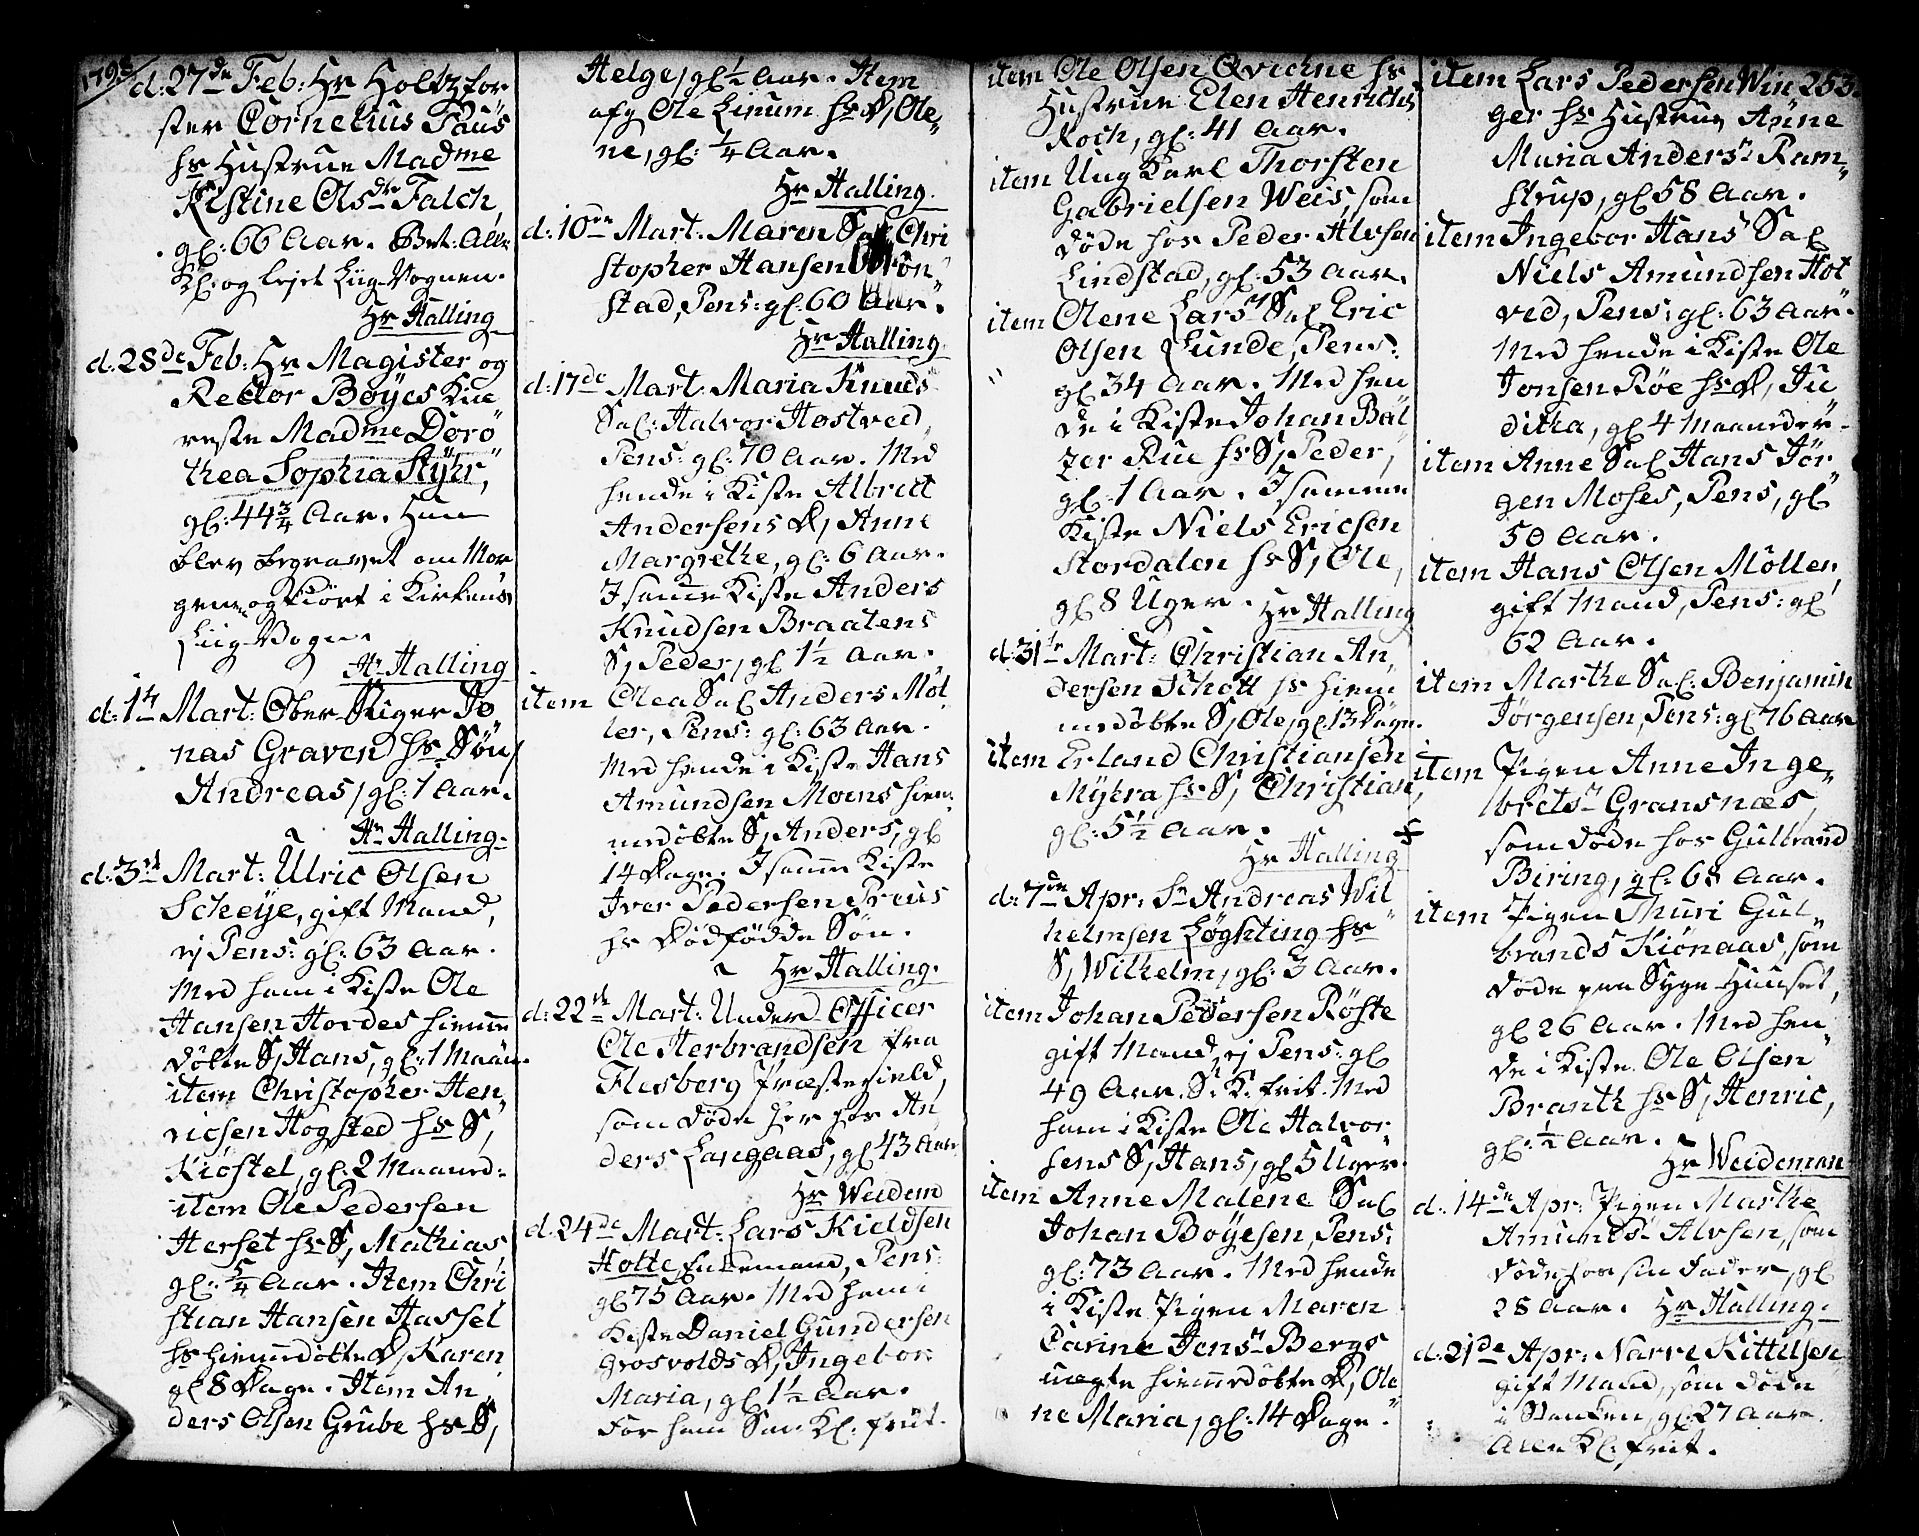 d. 27de Feb: Hr Holtzfor
ster Cornelius Paus
hs Hustrue Madme
Kistine Olsdtr Falch,
gl: 66 Aar. Bet: Alle
Kl: og lejet Liig-Vognen.
Hr Halling
d. 28de Feb: Hr Magister og
Rector Bøyes Kiæ
reste Madme Doro
thea Sophia Stÿhr,
gl: 44 3/4 Aar. Hun
blev begravet om Mor
genen og kiørt i Kirkens
Liig-Vogn.
Hr Halling
d. 1te Mart: Ober Stiger Jo
nas Graven hs Søn,
Andreas, gl: 1 Aar.
Hr Halling.
d. 3die Mart: Ulric Olsen
Scheÿe, gift Mand,
ej Pens: gl: 63 Aar.
Med ham i Kiste Ole
Hansen Hordes hiemme
døbte S, Hans, gl: 1 Maan.
item Christopher Hen
ricsen Hogsted hs S,
Kiøstel, gl: 2 Maaned:
item Ole Pedersen
Herset hs S, Mathias,
gl: 5/4 Aar. Item Chri
stian Hansen Hassel
hs hiemmedøbte D, Karen
gl 8 Dage. Item An
ders Olsen Grube hs S,
Helge, gl 1/2 Aar. Item
afg Ole Linum hs D, Ole
ne, gl: 1/4 Aar.
Hr Halling.
d. 10de Mart: Maren Sal Chri
stopher Hansen
stad, Pens: gl: 60 Aar.
Hr Halling.
d. 17de Mart: Maria Knuds
Sal: Halvor Hostved,
Pens: gl: 70 Aar. Med
hende i Kiste Albret
Andersens D, Anne
Margrethe, gl: 6 Aar.
I samme Kiste Anders
Knudsen Braatens
S, Peder, gl 1 1/2 Aar.
item Olea Sal Anders Møl
ler, Pens: gl: 63 Aar.
Med hende i Kiste Hans
Amundsen Moens hiem
medøbte S, Anders, gl
14 Dage. I samme Kiste
Iver Pedersen Preus
hs Dødfødde Søn.
Hr Halling.
d. 22de Mart: Under Officer
Ole Herbrandsen fra
Flesberg Præstegield,
som døde her hos An
ders Langaas, gl 43 Aar.
Hr Weidem
d. 24de Mart: Lars Kieldsen
Holte Enkemand, Pens:
gl 75 Aar. Med ham i
Kiste Daniel Gundersen
Grosvolds D, Ingebor
Maria, gl 1 1/2 Aar.
For ham Sm: Kl: frit.
item Ole Olsen Qvickne hs
Hustrue Elen Henrichs
Koch, gl: 41 Aar.
item Ung Karl Thorsten
Gabrielsen Weis, som
døde hos Peder Alvsen
Lindstad, gl: 53 Aar.
item Olene Lars Sal Eric
Olsen Lunde, Pens:
gl 34 Aar. Med hen
de i Kiste Johan Bal
tzer Rue hs S, Peder,
gl: 1 Aar. I samme
Kiste Niels Ericsen
Stordalen hs S, Ole,
gl 8 Uger. Hr Halling
d. 31te Mart: Christian An
dersen Schott hs hiem
medøbte S, Ole, gl 13 Dage.
item Erland Christiansen
Mÿhra hs S, Christian,
gl: 5 1/2 Aar.
Hr Halling
d. 7de Apr: Sr Andreas Wil
helmsen Løghting hs
S, Wilhelm, gl: 3 Aar.
item Johan Pedersen Røste
gift Mand, ej Pens: gl
49 Aar. S. K. frit. Med
ham i Kiste Ole Halvor
sens S, Hans, gl 5 Uger.
item Anne Malene Sal
Johan Boÿesen, Pens:
gl: 73 Aar. Med hende
i Kiste Pigen Maren
Carine Jens Bergs
uægte hiemmedøbte D, Ole
ne Maria, gl: 14 Dage.
253.
item Lars Pedersen Win
ger hs Hustrue Anne
Maria Anders Ram
strup, gl 58 Aar.
item Ingebor Hans Sal
Niels Amundsen Hot
ved, Pens: gl: 63 Aar.
Med hende i Kiste Ole
Jonsen Røe hs D, Ju
ditha, gl 4 Maaneder.
item Anne Sal Hans Jør
gen Moses, Pens, gl
50 Aar.
item Hans Olsen Møller,
gift Mand, Pens: gl
62 Aar.
item Marthe Sal: Benjamin
Jørgensen, Pens: gl 76 Aar
item Pigen Anne Inge
brets Gransnæs,
som døde hos Gulbrand
Biring, gl: 68 Aar.
item Pigen Thuri Gul
brands Kiønaas, som
døde paa Syge-Huuset,
gl 26 Aar. Med hen
de i Kiste Ole Olsen
Branth hs S, Henric,
gl: 1/2 Aar.
Hr Weideman
d. 14de Apr: Pigen Marthe
Amunds Alvsen, som
døde hos sin Fader, gl
28 Aar. Hr Halling.
d. 21de Apr: Narve Kittelsen
gift Mand, som døde
gl: 27 Aar.
Alle Kl: frit.